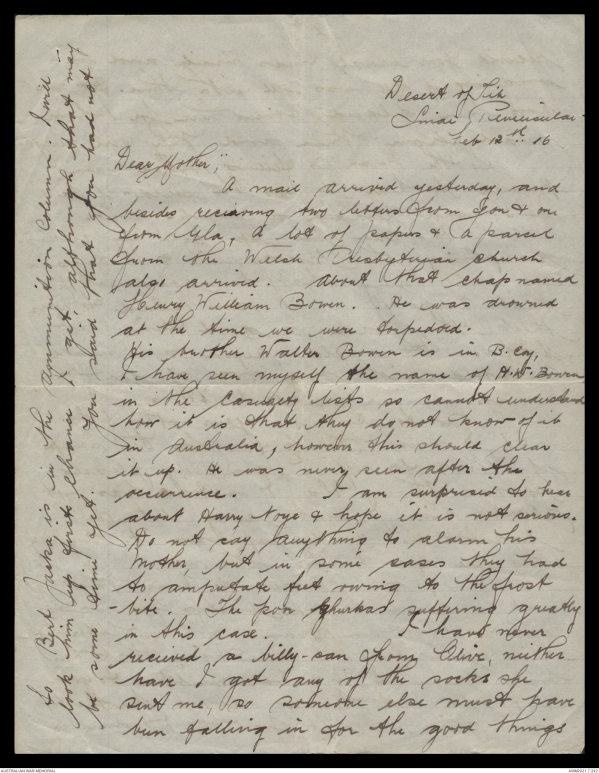 Desert of Tih
Sinai Penensular
Feb 12th 16
Dear Mother,
A mail arrived yesterday, and
besides recieving two letters from you & one
from Gla, a lot of papers & a parcel
from the Welsh Presbyterian church
also arrived. About that chap named
Henry William Bowen. He was drowned
at the time we were torpedoed.
His brother Walter Bowen is in B. Coy,
I have seen myself the name of H.W. Bowen
in the Casualty lists so cannot understand
how it is that they do not know of it
in Australia, however this should clear
it up. He was never seen after the
occurrence. I am surprised to hear
about Harry Noye & hope it is not serious.
Do not say anything to alarm his
mother, but in some cases they had
to amputate feet owing to the frost
-bite. The poor Ghurkas suffering greatly
in this case. I have never
recieved a billy-can from Olive, neither
have I got any of the socks she
sent me, so someone else must have
been falling in for the good things
to Bert Jacka is in the Ammunition Column. I will
look him up first chance I get, although that may
be some time yet. You said that you had not
AUSTRALIAN WAR MEMORIAL